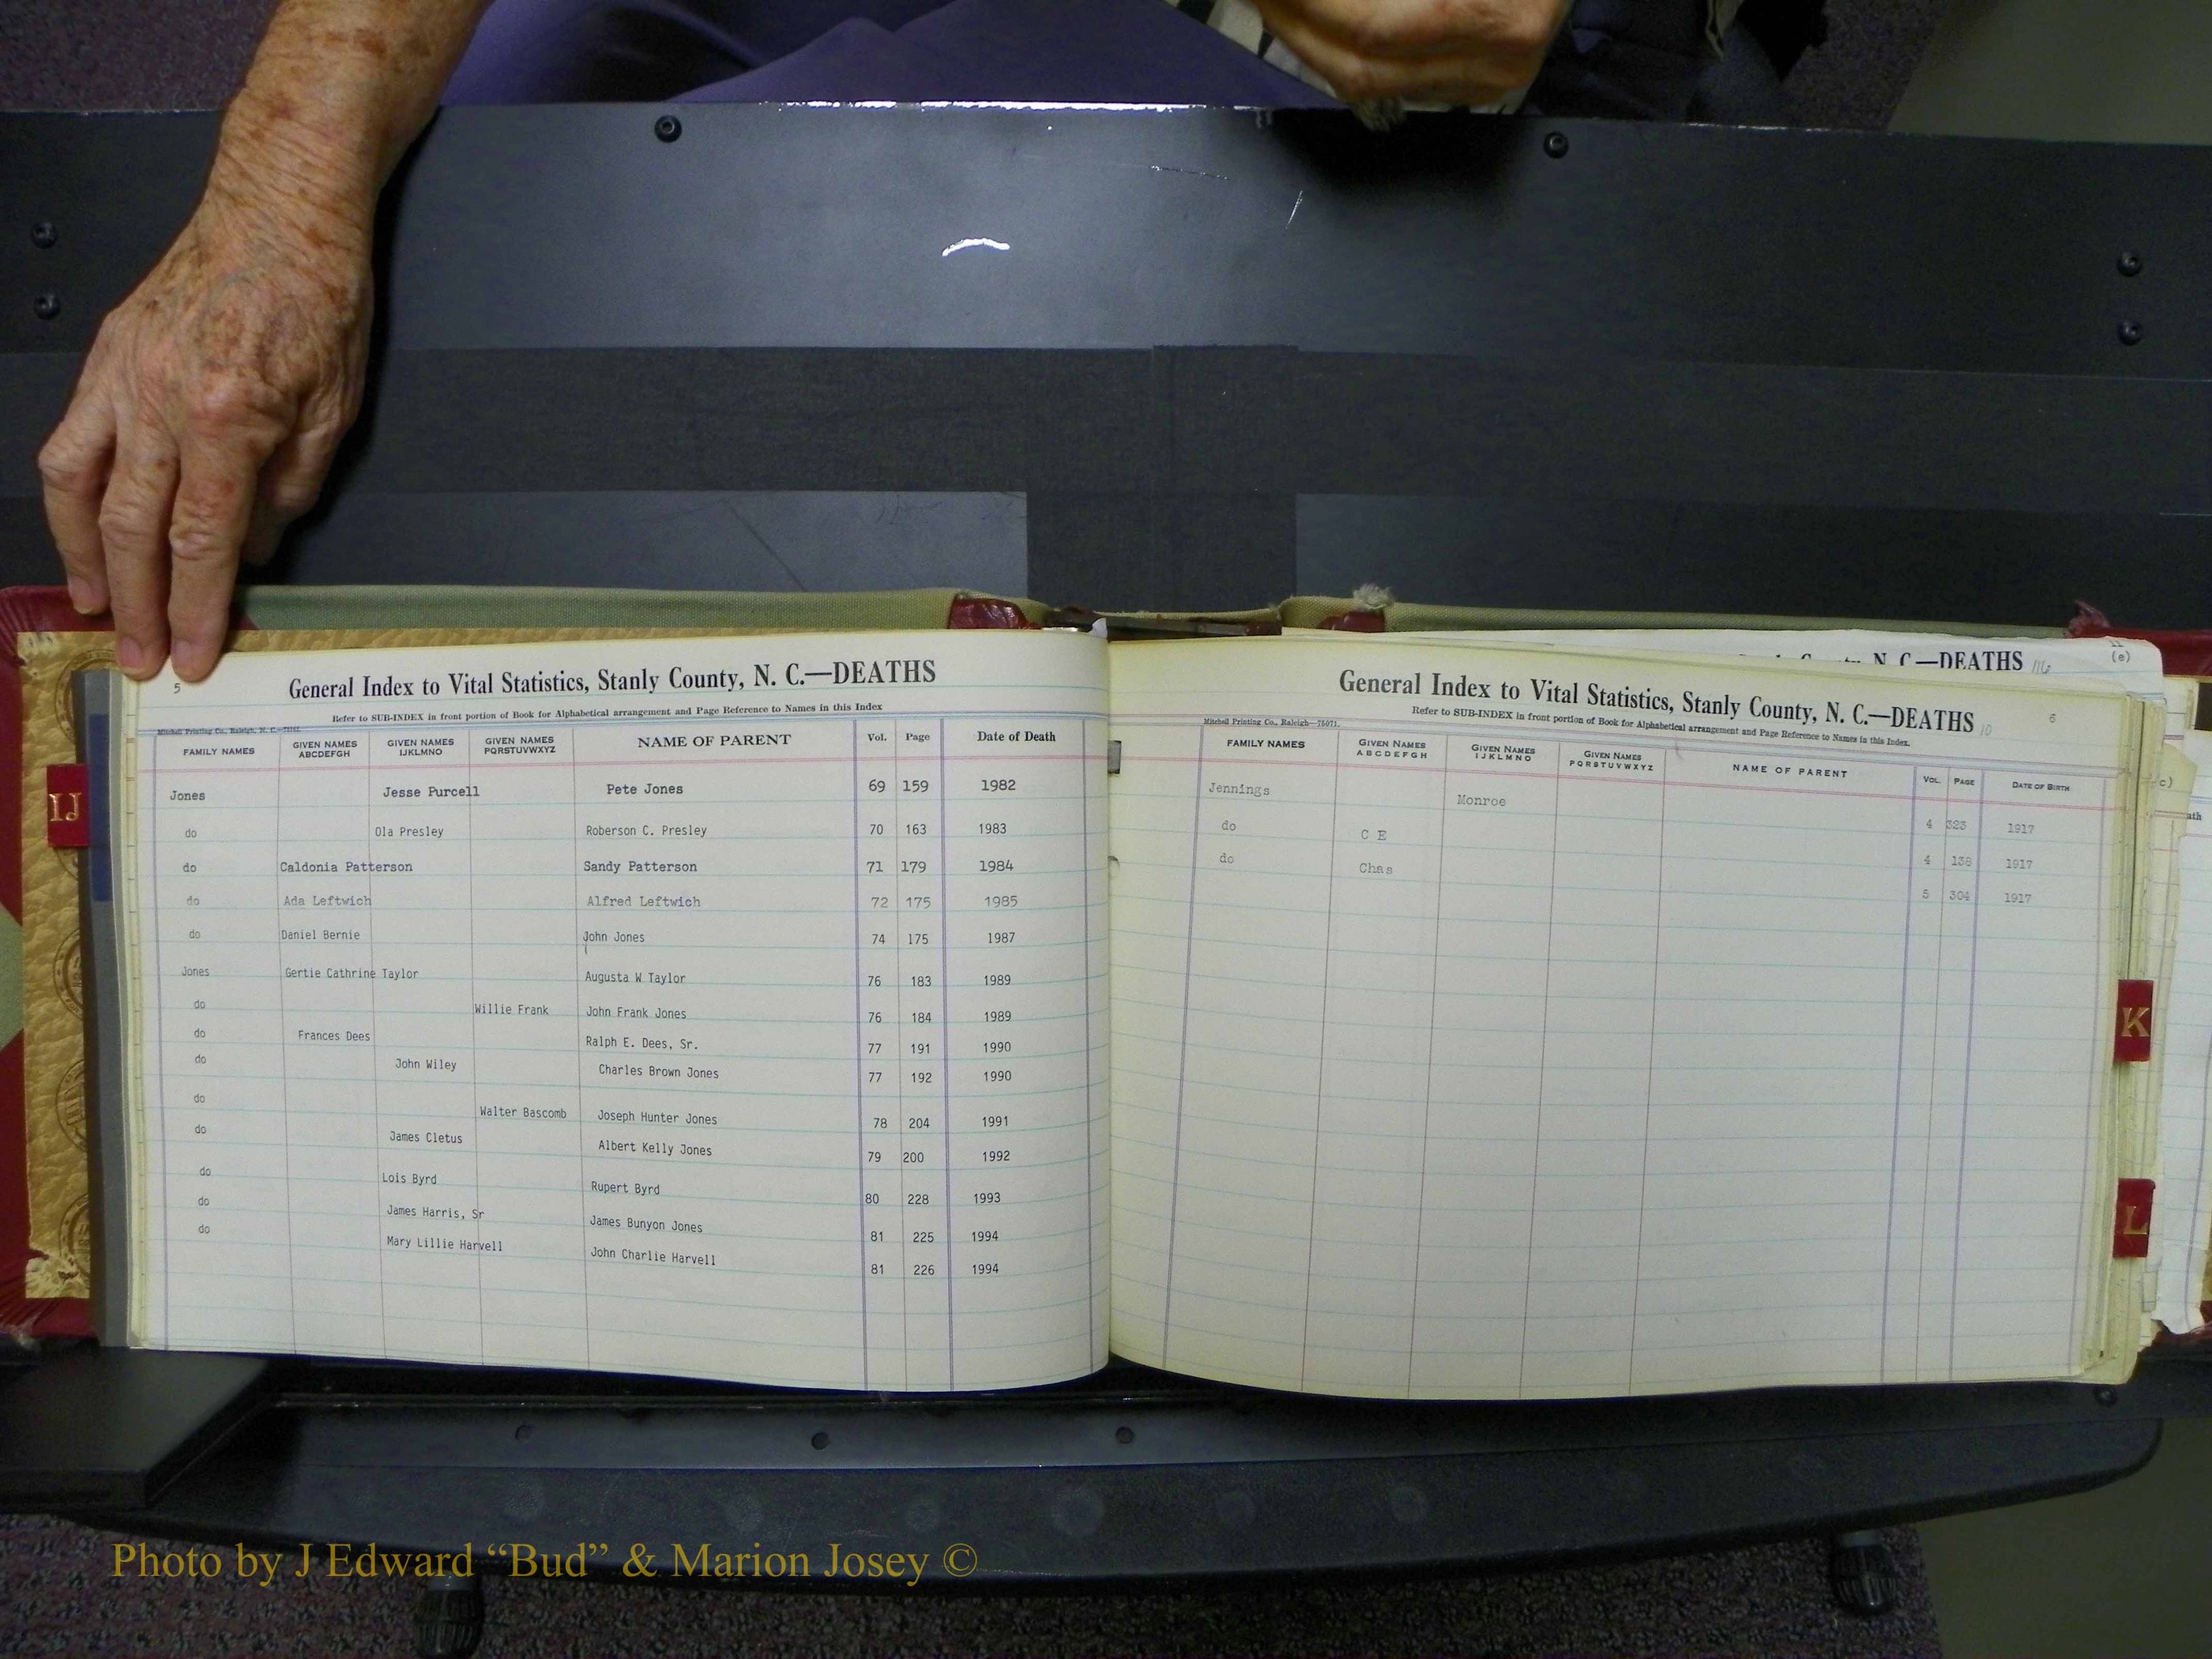 5
General Index to Vital Statistics, Stanly County, N. C.—DEATHS
Refer to SUB-INDEX in front portion of Book for Alphabetical arrangement and Page Reference to Names in this Index
Mitchell Printing Co., Raleigh, N. C.
FAMILY NAMES GIVEN NAMES ABCDEFGH GIVEN NAMES IJKLMNO GIVEN NAMES PQRSTUVWXYZ NAME OF PARENT Vol. Page Date of Death
Jones Jesse Purcell Pete Jones 69 159 1982
do Ola Presley Roberson C. Presley 70 163 1983
do Caldonia Patterson Sandy Patterson 71 179 1984
do Ada Leftwich Alfred Leftwich 72 175 1985
do Daniel Bernie John Jones 74 175 1987
Jones Gertie Cathrine Taylor Augusta W Taylor 76 183 1989
do Willie Frank John Frank Jones 76 184 1989
do Frances Dees Ralph E. Dees, Sr. 77 191 1990
do John Wiley Charles Brown Jones 77 192 1990
do Walter Bascomb Joseph Hunter Jones 78 204 1991
do James Cletus Albert Kelly Jones 79 200 1992
do Lois Byrd Rupert Byrd 80 228 1993
do James Harris, Sr James Bunyon Jones 81 225 1994
do Mary Lillie Harvell John Charlie Harvell 81 226 1994
IJ
County, N. C.—DEATHS 116
(e)
General Index to Vital Statistics, Stanly County, N. C.—DEATHS 10
6
Refer to SUB-INDEX in front portion of Book for Alphabetical arrangement and Page Reference to Names in this Index.
Mitchell Printing Co., Raleigh—75071.
FAMILY NAMES GIVEN NAMES ABCDEFGH GIVEN NAMES IJKLMNO GIVEN NAMES PQRSTUVWXYZ NAME OF PARENT VOL. PAGE DATE OF BIRTH
Jennings Monroe 4 323 1917
do C E 4 138 1917
do Chas 5 304 1917
c)
ath
K
L
Photo by J Edward “Bud” & Marion Josey ©